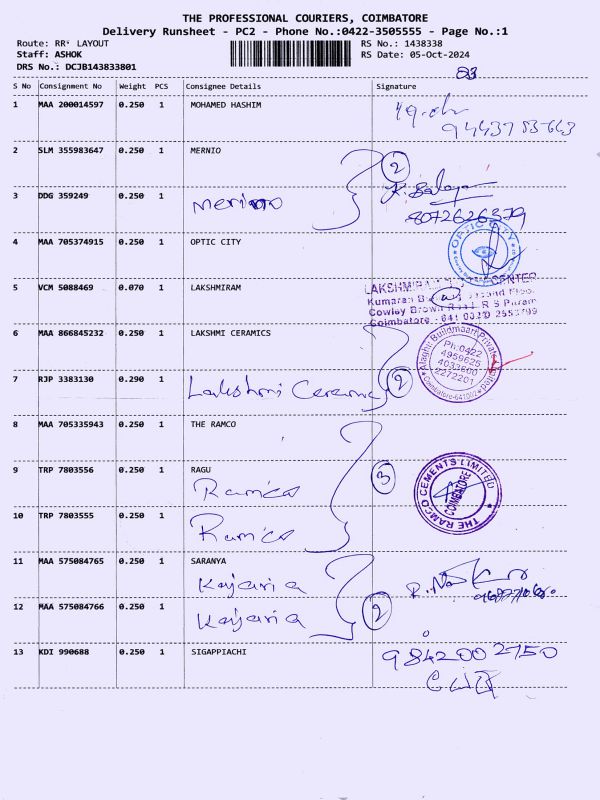 THE PROFESSIONAL COURIERS, COIMBATORE
Delivery Runsheet - PC2 - Phone No.:0422-3505555 - Page No.:1
Route: RR* LAYOUT
RS No.: 1438338
Staff: ASHOK
RS Date: 05-Oct-2024
DRS No.: DCJB143833801
S No Consignment No Weight PCS Consignee Details Signature
1 MAA 200014597 0.250 1 MOHAMED HASHIM
2 SLM 355983647 0.250 1 MERNIO
2
3 DDG 359249 0.250 1
merino
8072626379
4 MAA 705374915 0.250 1 OPTIC CITY
OPTIC CITY
5 VCM 5088469 0.070 1 LAKSHMIRAM
CENTER
Kumaran
Cowley Brown Road R S Puram
Coimbatore
6 MAA 866845232 0.250 1 LAKSHMI CERAMICS
Alaghu Buildmaart Private Limited
Ph:0422
4959625
4033860
2272201
Coimbatore-641002
7 RJP 3383130 0.290 1
Lakshmi Ceramic
2
8 MAA 705335943 0.250 1 THE RAMCO
9 TRP 7803556 0.250 1 RAGU
Ramco
3
THE RAMCO CEMENTS LIMITED
COIMBATORE
10 TRP 7803555 0.250 1
Ramco
11 MAA 575084765 0.250 1 SARANYA
Kajaria
12 MAA 575084766 0.250 1
Kajaria
2
13 KDI 990688 0.250 1 SIGAPPIACHI
9842002750